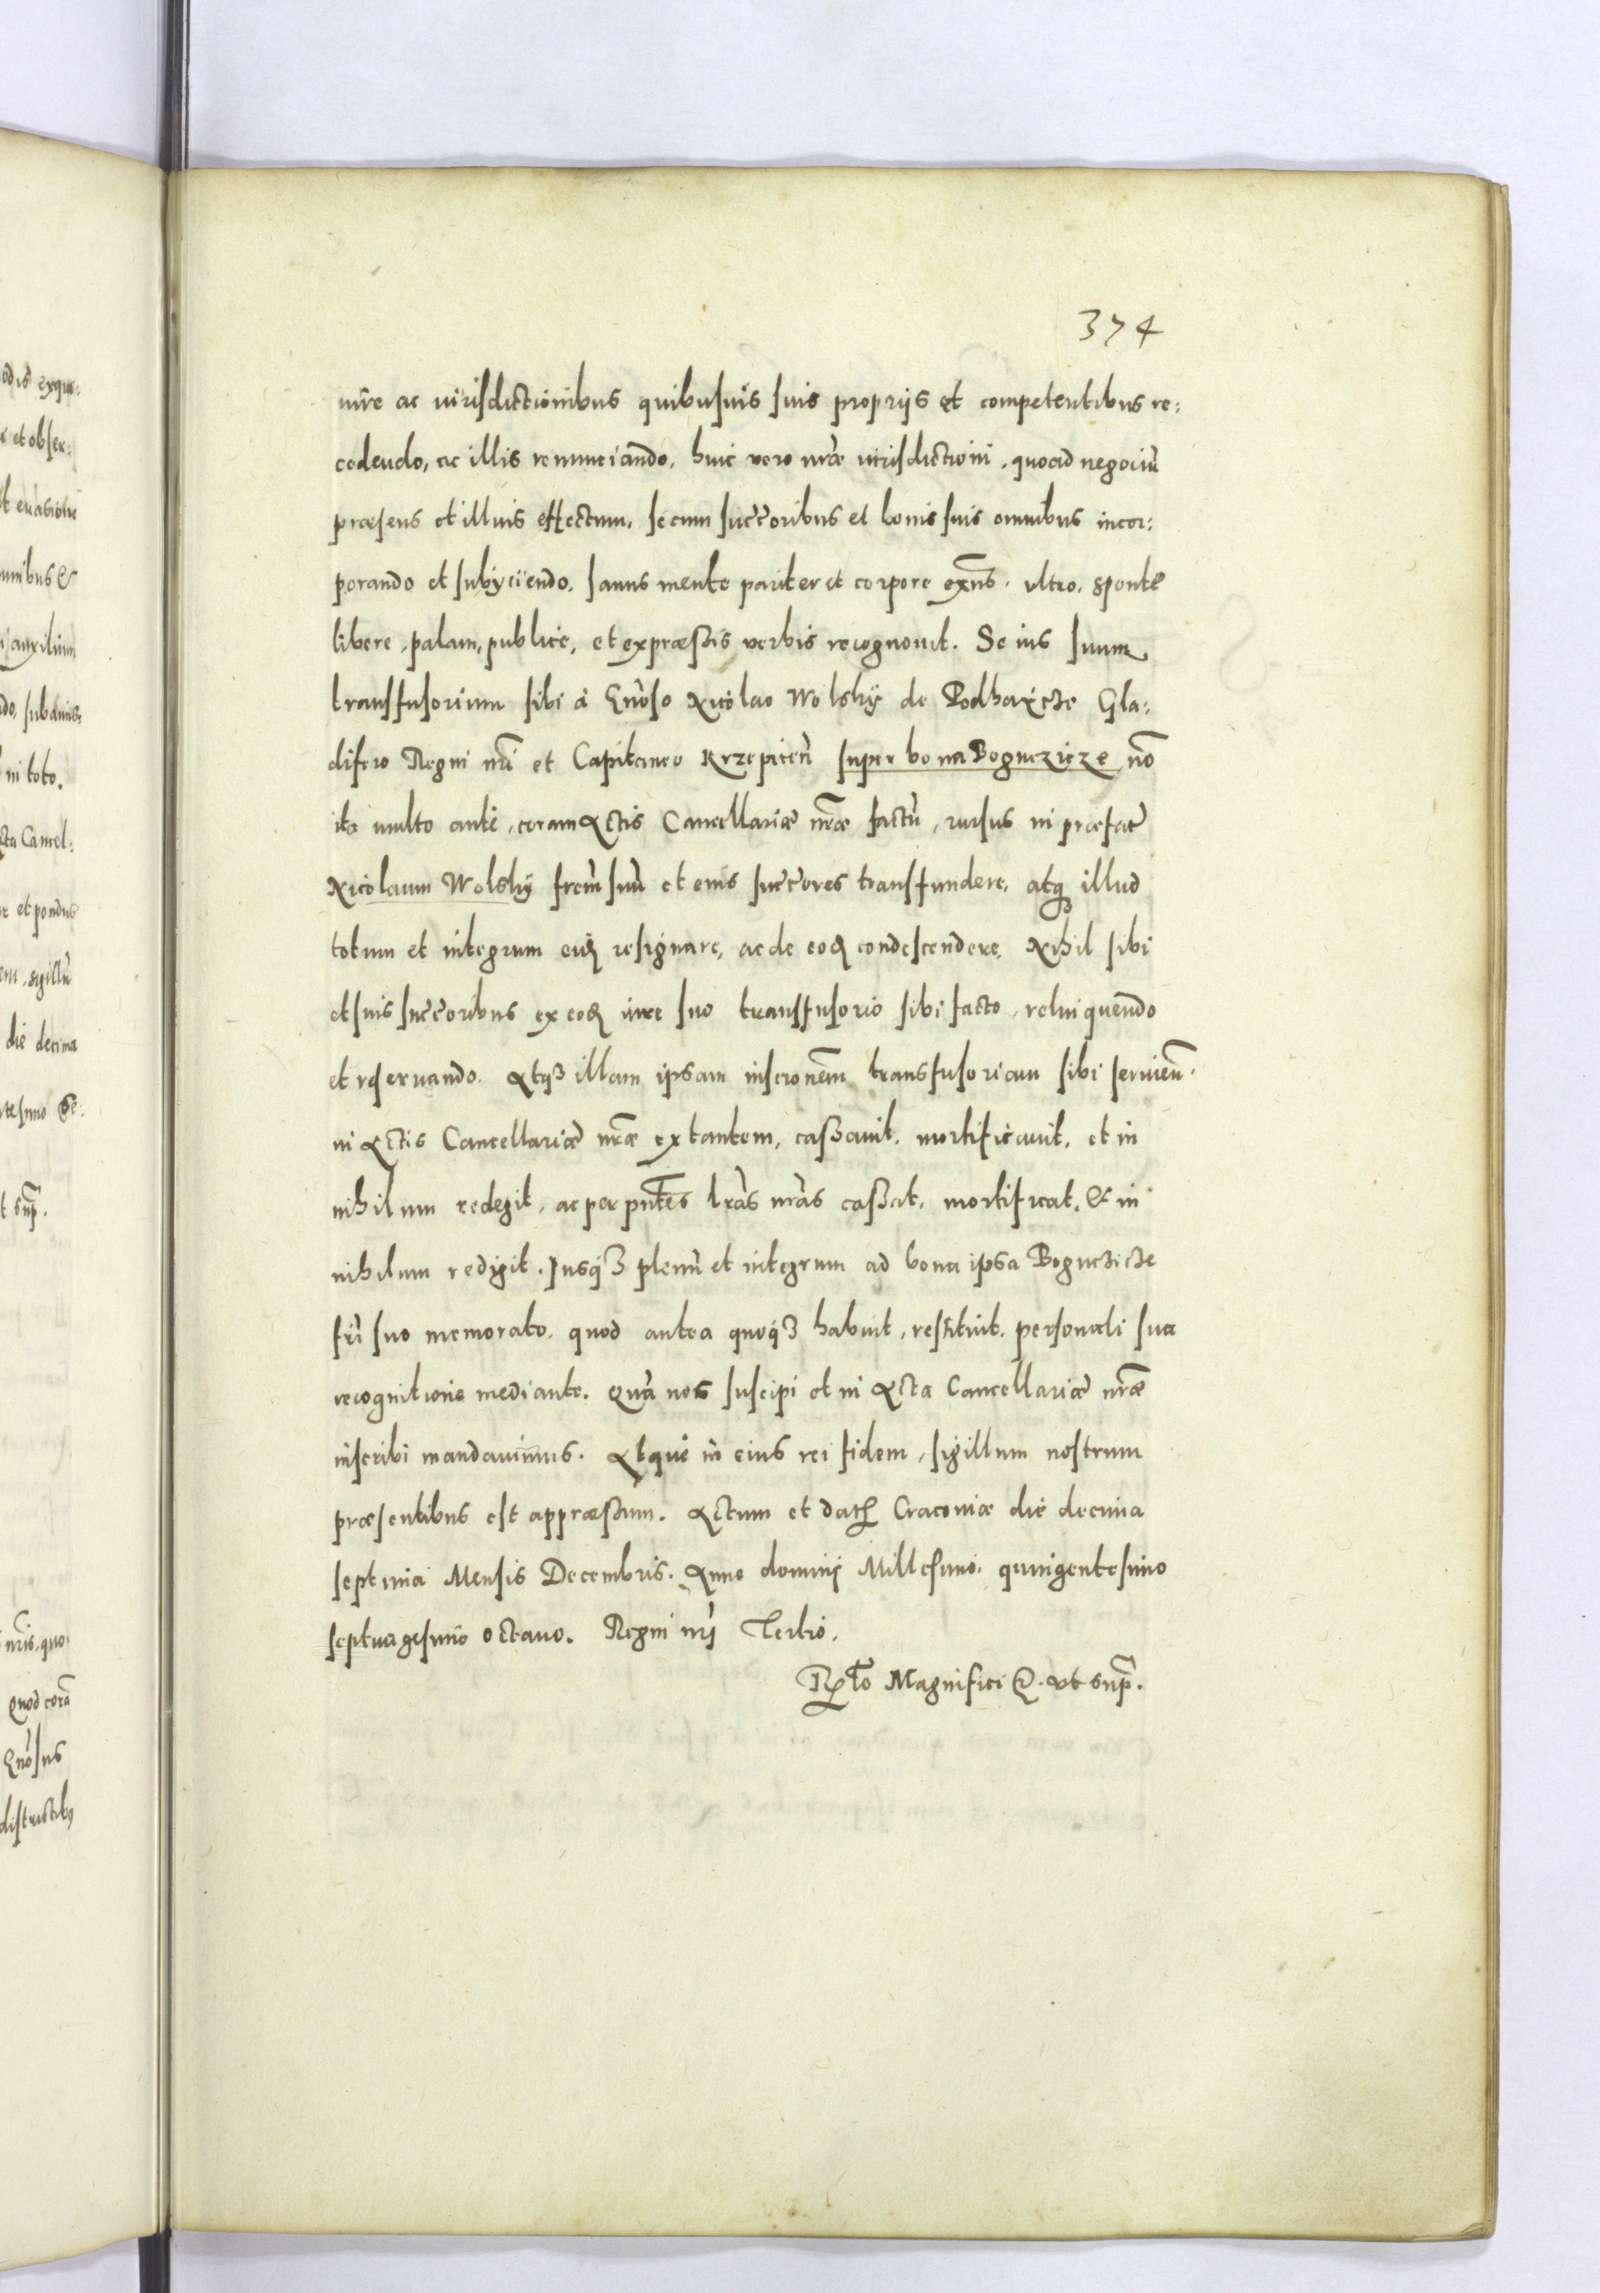 374
iure ac iurisdictionibus quibusuis suis proprijs et competentibus re:
cedendo, ac illis renunciando, huic vero nræ iurisdictioni, quoad negociũ
præsens et illius effectum, se cum succoribus et bonis suis omnibus incor:
porando et subÿciendo, sanus mente pariter et corpore exñs. ultro, sponte
libere, palam, publice, et expræssis verbis recognouit. Se ius suum
transfusorium sibi à Gñoso Nicolao Wolskÿ de Podhaicze Gla:
difero Regni nri et Capitaneo Krzepicen̄ super bona Boguczicze nõ
ita multo ante, coram Actis Cancellariæ nræ factũ, rursus in præfat
Nicolaum Wolskÿ frem suũ et eius succores transfundere, atq illud
totum et integrum eid resignare, ac de eod condescendere, Nihil sibi
et suis succoribus ex eod iure suo transfusorio sibi facto, relinquendo
et reseruando. Atqз illam ipsam inscronem transfusoriam sibi seruien̄.
in Actis Cancellariæ nræ extantem, cassauit, mortificauit, et in
nihilum redegit, ac per pntes lras nras cassat, mortificat, & in
nihilum redigit. Jusqз plenũ et integrum ad bona ipsa Boguczicze
fri suo memorato, quod antea quoqз habuit, restituit, personali sua
recognitione mediante. Quã nos suscipi et in Acta Cancellariæ nræ
inscribi mandauimus. Atque in eius rei fidem, sigillum nostrum
præsentibus est appræssum. Actum et dat Cracouiæ die decima
septima Mensis Decembris. Anno domini Millesimo, quingentesimo
septuagesimo octauo. Regni nri Tertio.
Rto Magnifici &. vt sup.